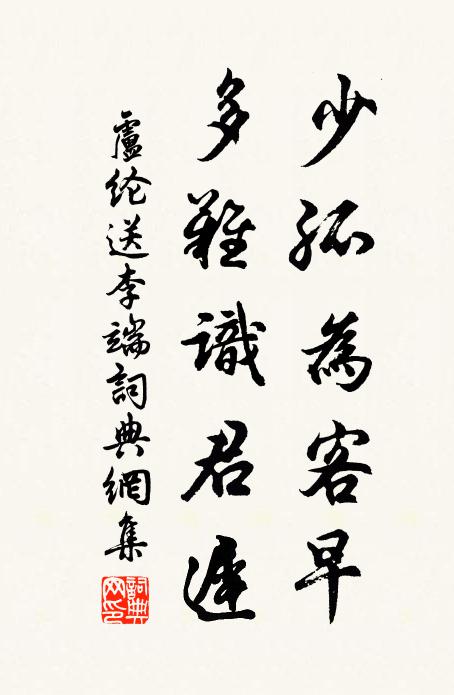 少孤為客早
多難識君遲
盧纶送李端詞典網集
詞典
网印